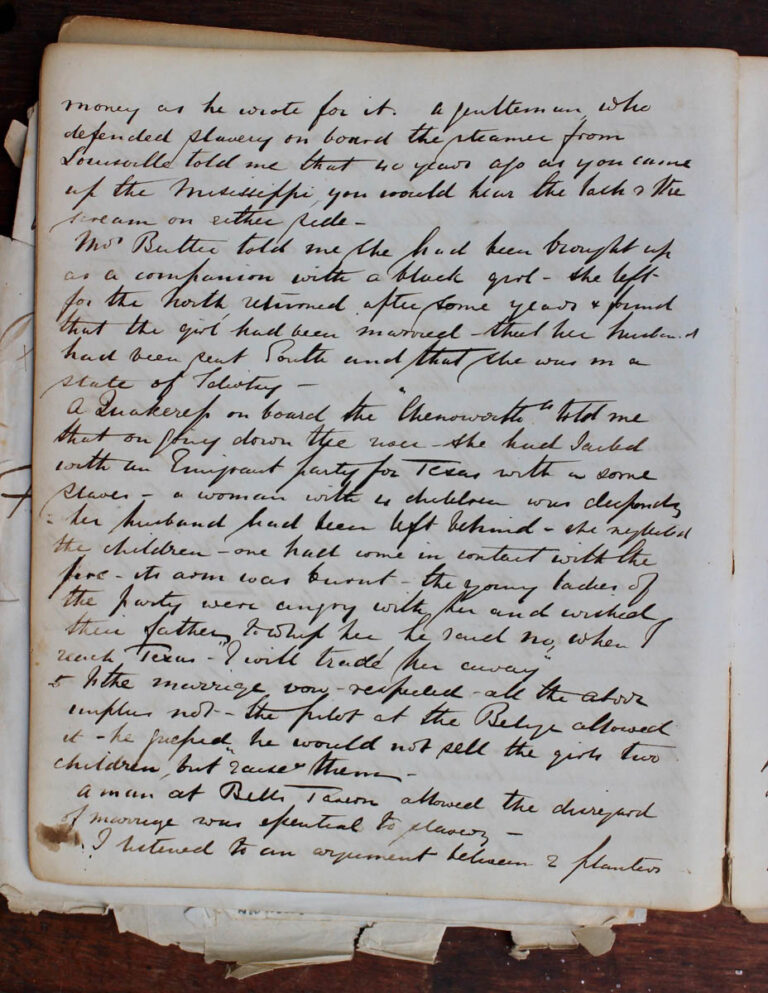 money as he wrote for it. A gentleman who
defended slavery on board the steamer from
Louisville told me that 40 years ago as you came
up the Mississippi, you would hear the lash & the
scream on either side –
Mrs Butler told me she had been brought up
as a companion with a black girl – she left
for the north returned after some years & found
that the girl had been married – that her husband
had been sent South and that she was in a
state of Idiotcy –
A Quakeress on board the "Chenoworth" told me
that on going down the river – she had sailed
with an Emigrant party for Texas with some
slaves – a woman with children was desponding
– her husband had been left behind – she neglected
the children – one had come in contact with the
fire – its arm was burnt – the young ladies of
the party were angry with her and wished
their father to whip her he said no, when I
reach Texas – "I will trade her away"
5 Is the marriage vow – respected – all the above
implies not – the pilot at the allowed
it – he guessed" he would not sell the girls two
children, but "raise" them –
A man at Bells Tavern allowed the disregard
of marriage was essential to slavery –
I listened to an argument between 2 planters